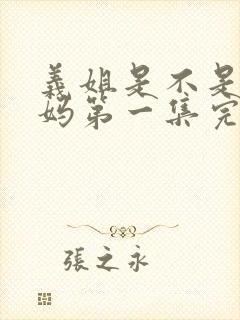 義姐是不是
妈第一集完
張之永